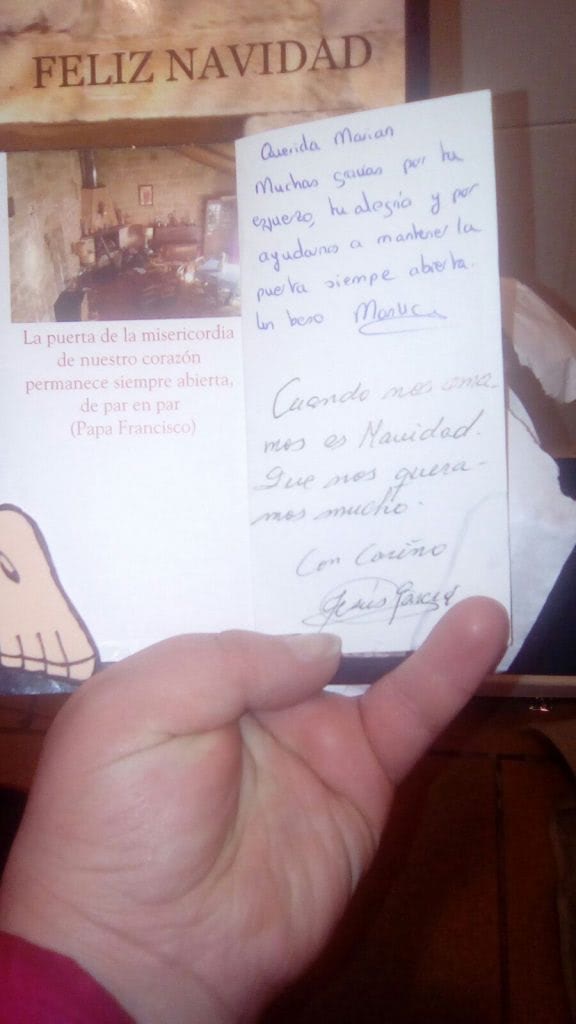 FELIZ NAVIDAD
La puerta de la misericordia
de nuestro corazón
permanece siempre abierta,
de par en par
(Papa Francisco)
Querida Marian
Muchas gracias por tu
esfuerzo, tu alegría y por
ayudarnos a mantener la
puerta siempre abierta.
Un beso
Cuando nos ama-
mos es Navidad.
Que nos quera-
mos mucho.
Con Cariño
Jesús García